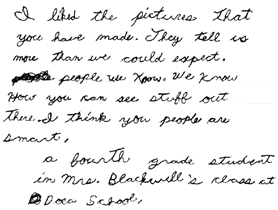 I liked the pictures that
you have made. They tell us
more than we could expect.
people we know. We know
How you can see stuff out
there. I think you people are
smart,
a fourth grade student
in Mrs. Blackwell's class at
Doca School,